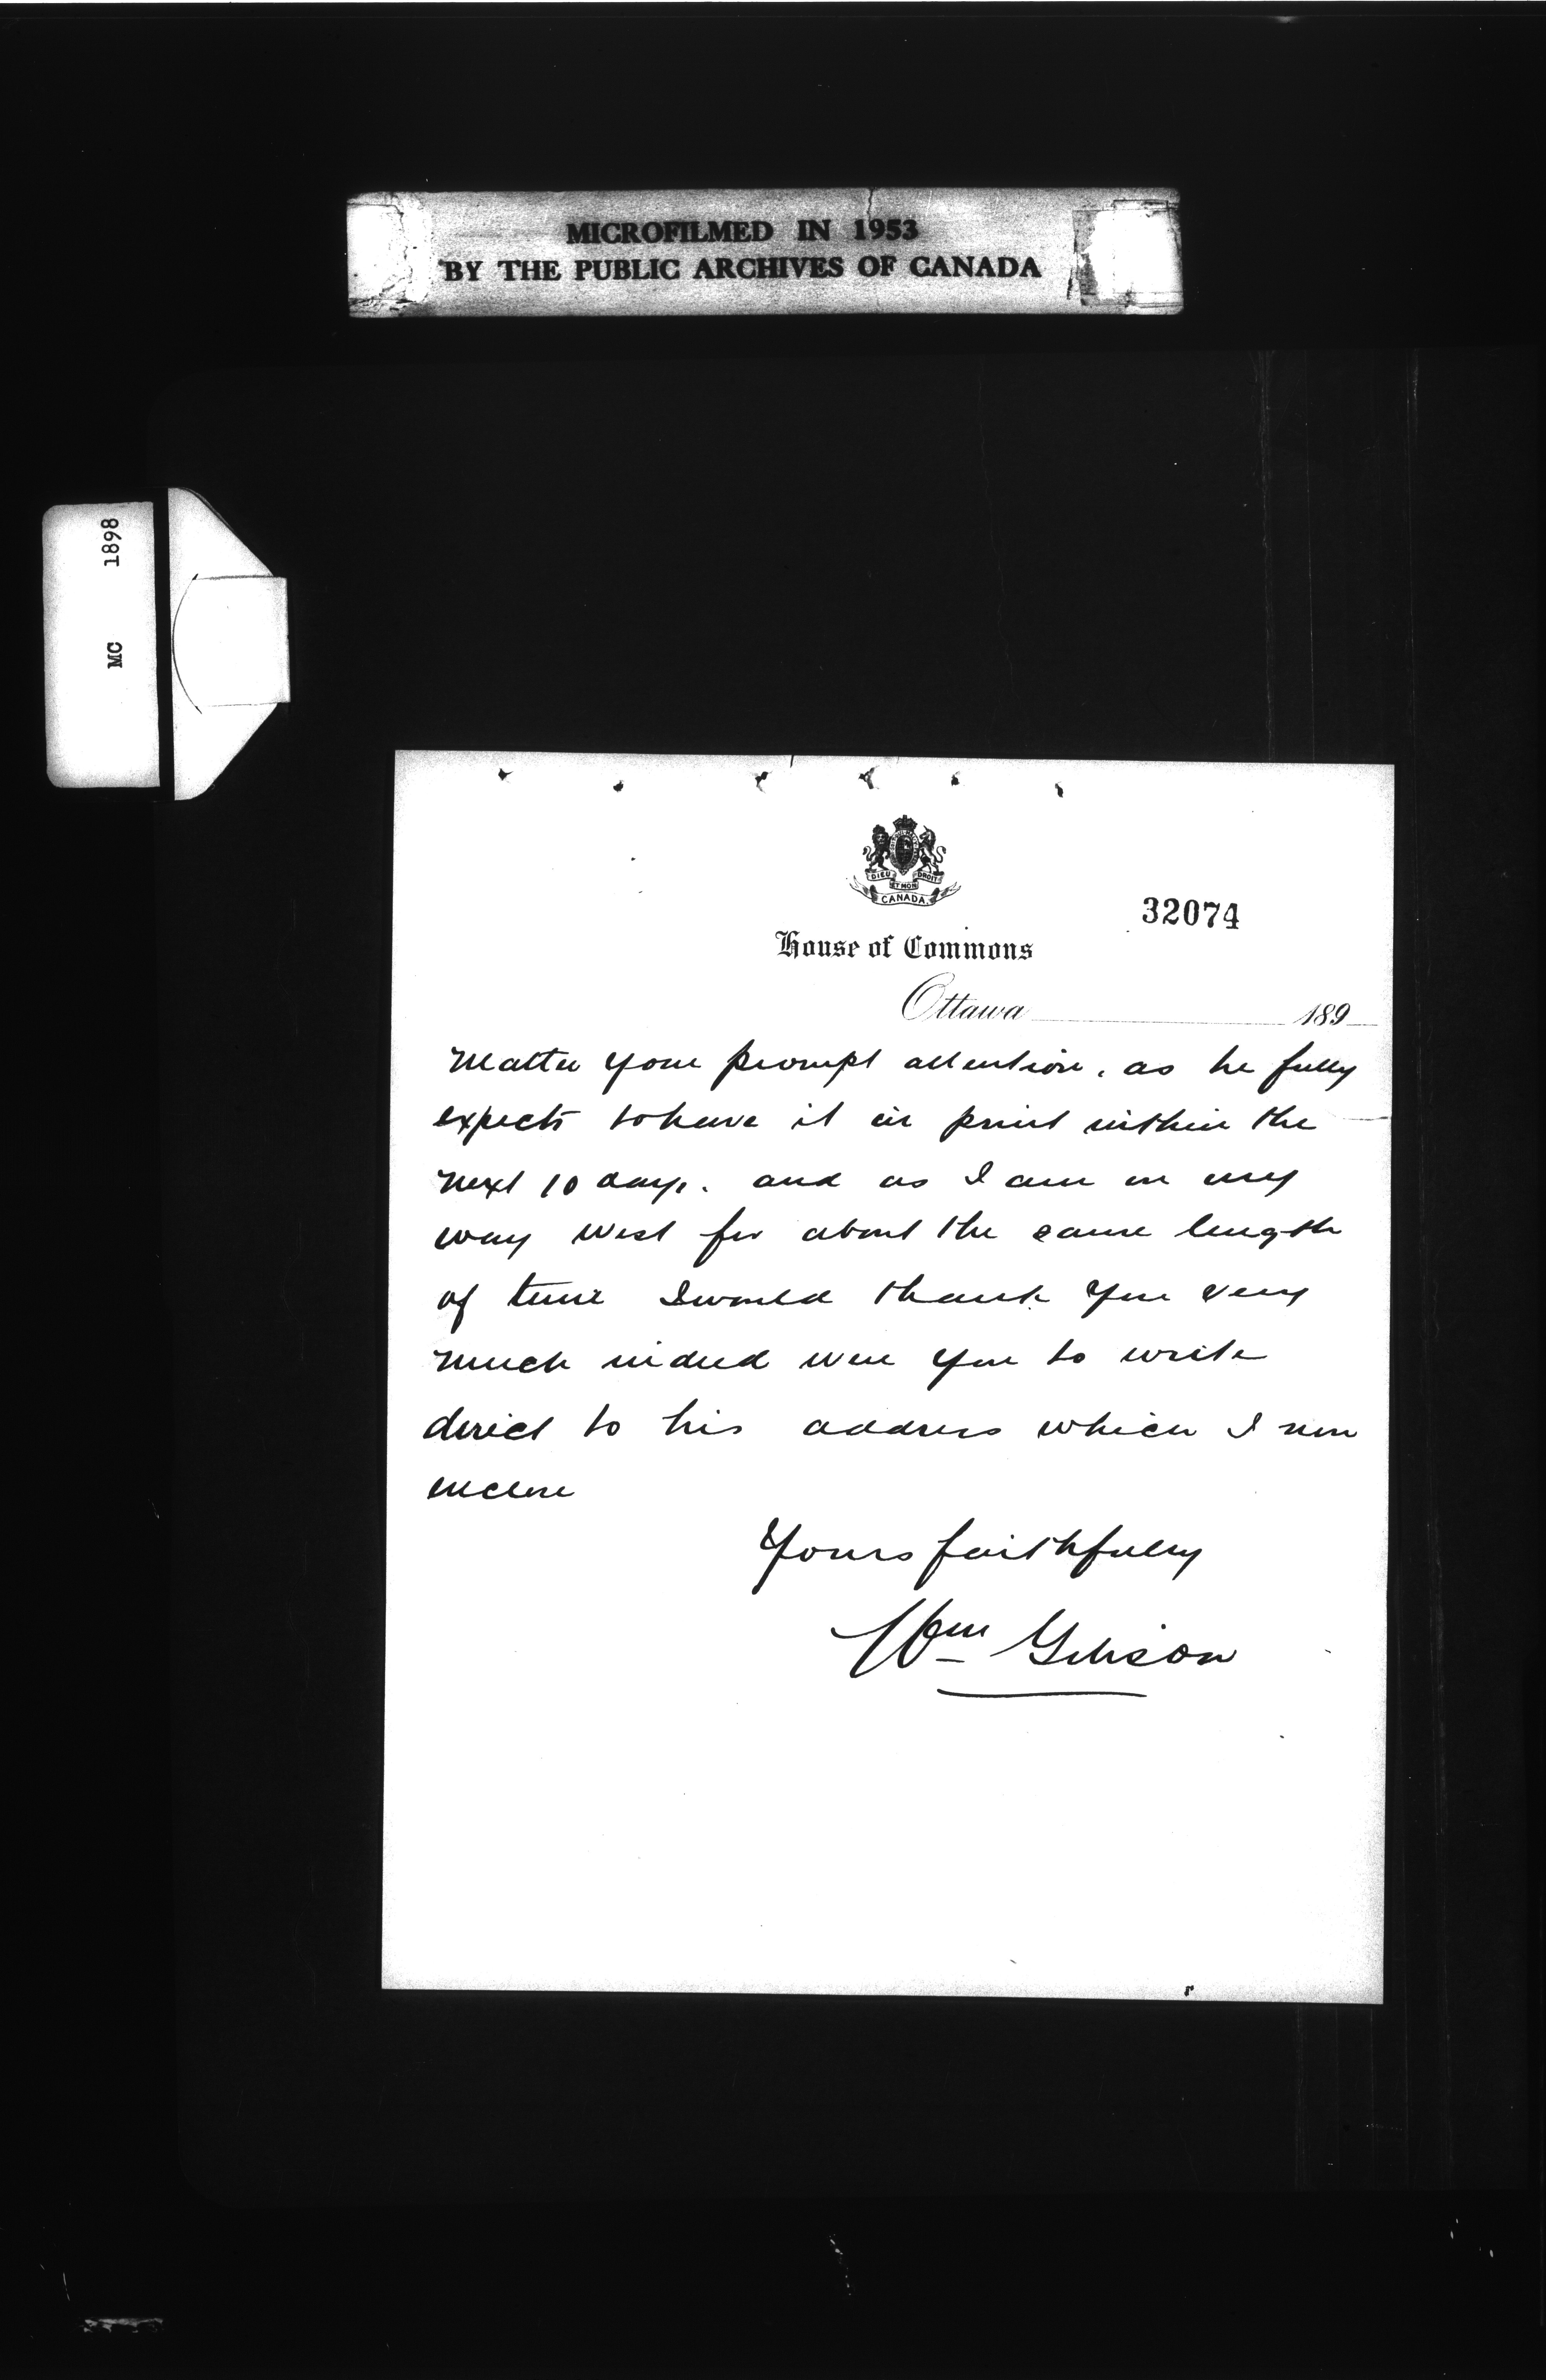 MICROFILMED IN 1953
BY THE PUBLIC ARCHIVES OF CANADA
MC 1898
DIEU ET MON DROIT
CANADA.
32074
House of Commons
Ottawa 189
Matter your prompt attention, as he fully
expects to have it in print within the
next 10 days. and as I am on my
way West for about the same length
of time I would thank you very
much indeed were you to write
direct to his address which I now
enclose
Yours faithfully
Wm Gibson